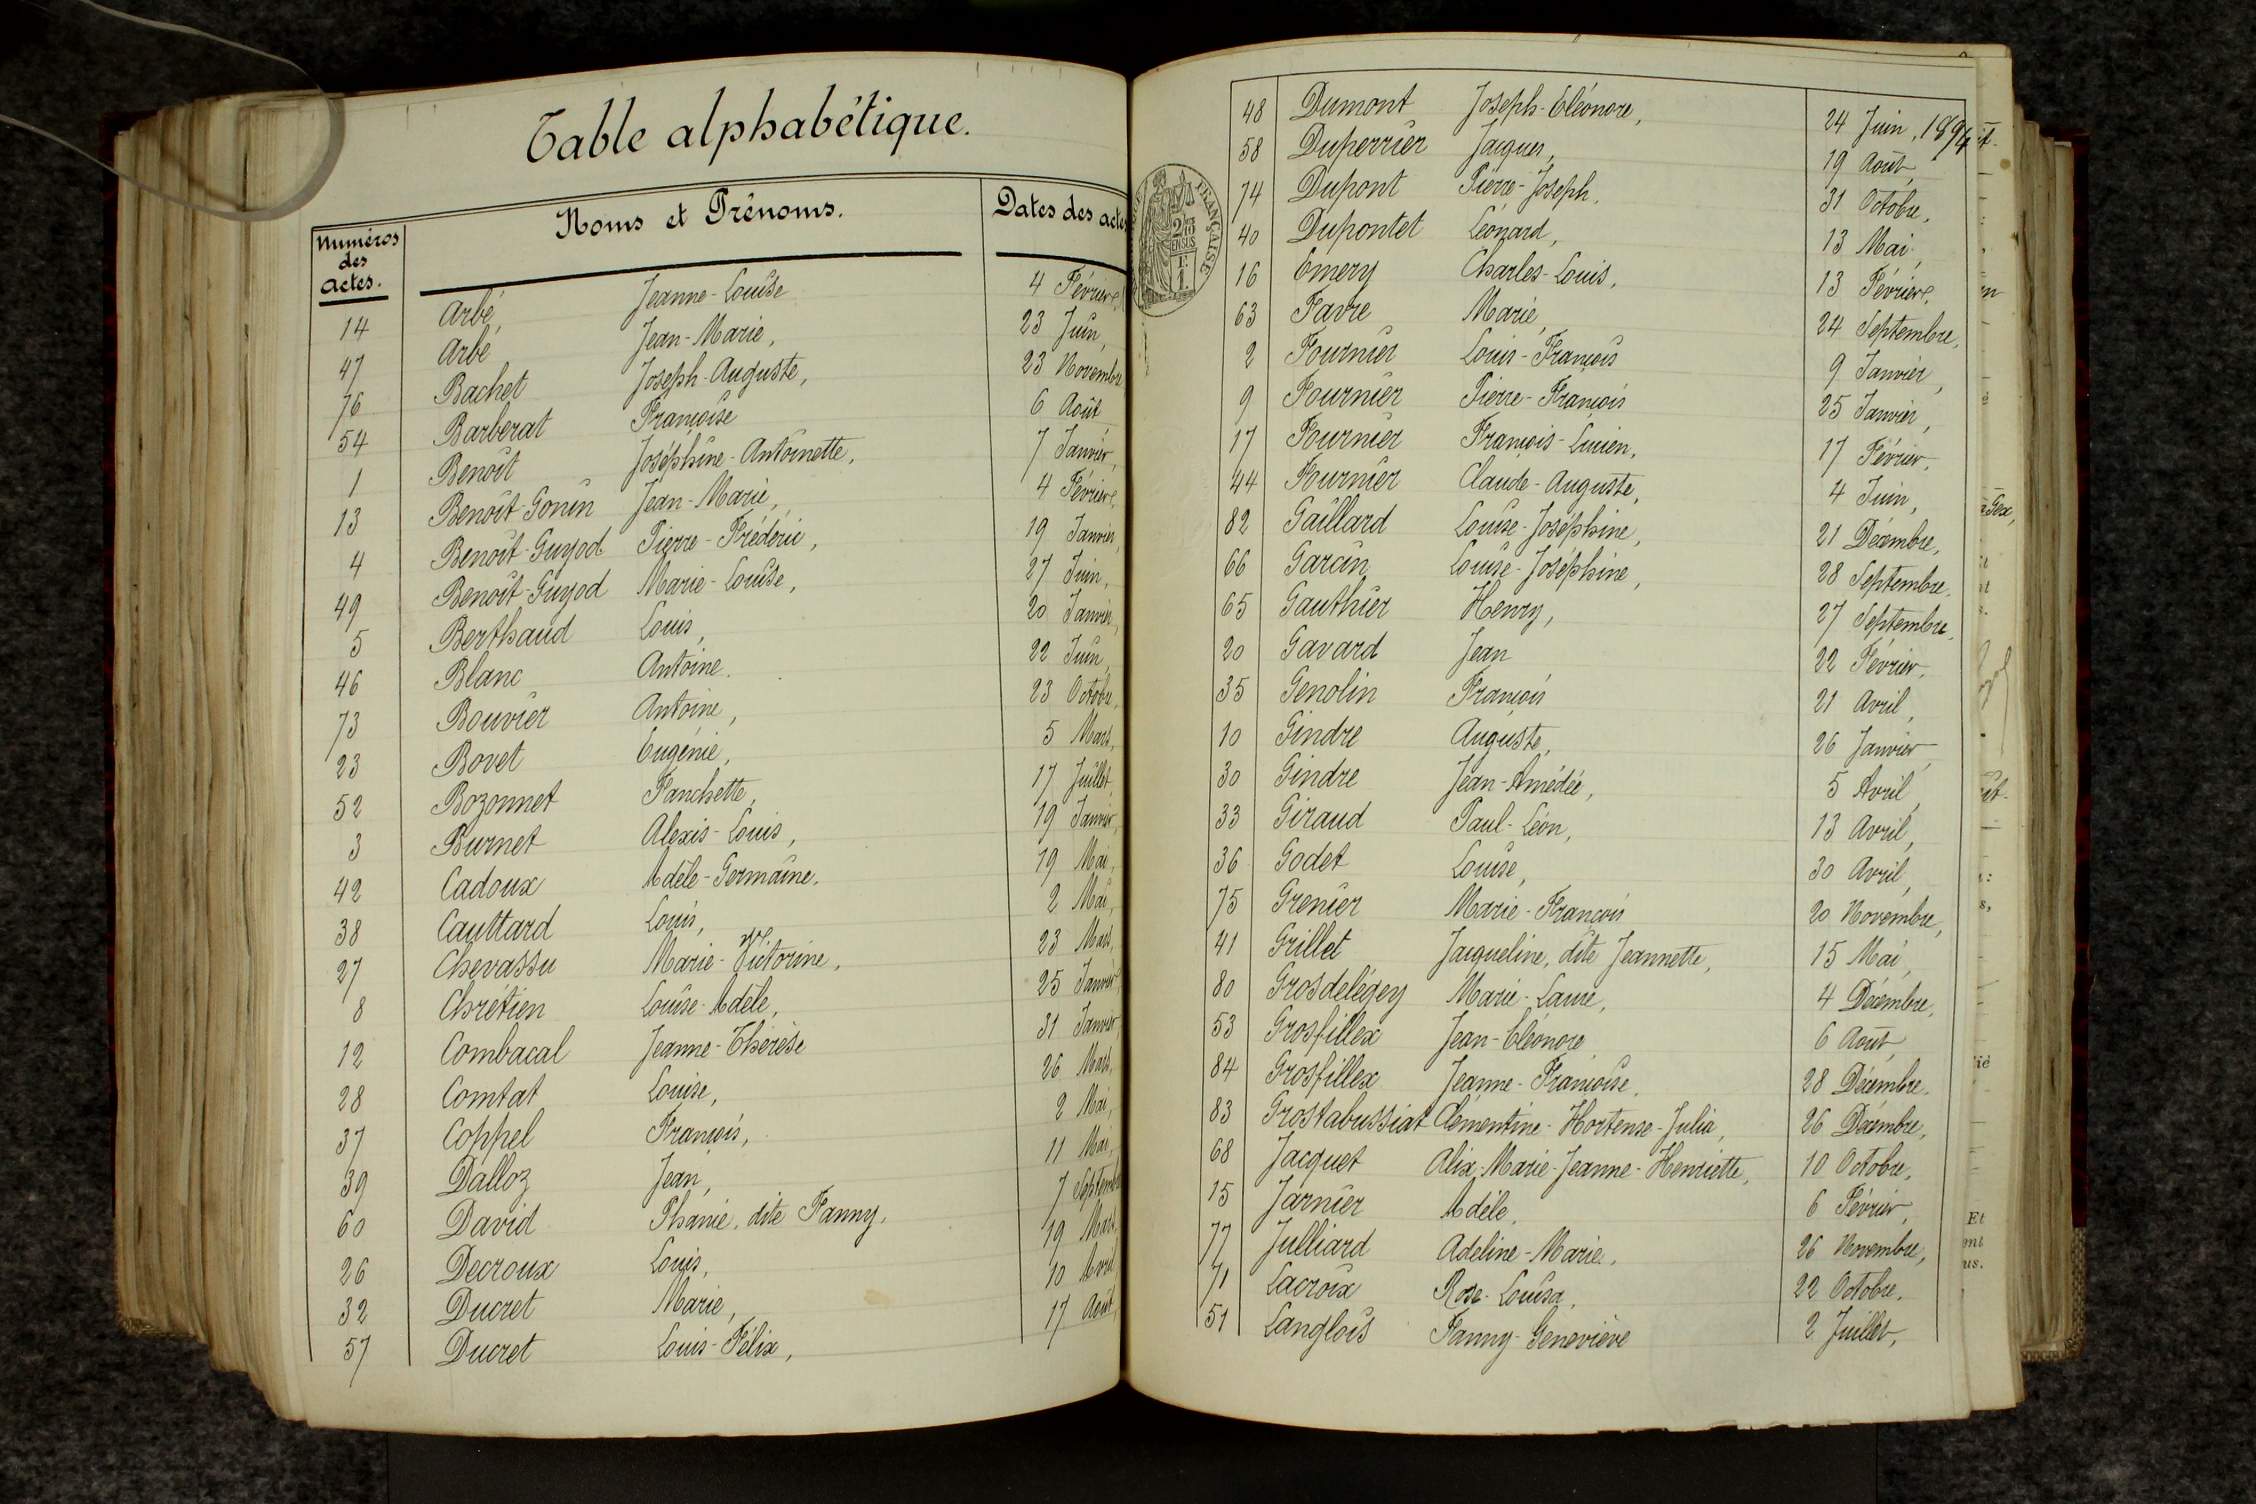 Table alphabétique.
Numéros des actes. Noms et Prénoms. Dates des actes
14 Arbé Jeanne-Louise 4 Février
47 Arbé Jean-Marie, 23 Juin,
76 Bachet Joseph-Auguste, 23 Novembre
54 Barberat Françoise 6 Août
1 Benoît Joséphine-Antoinette, 7 Janvier,
13 Benoît-Gonin Jean-Marie, 4 Février,
4 Benoît-Guyod Pierre-Frédéric, 19 Janvier,
49 Benoît-Guyod Marie-Louise, 27 Juin,
5 Berthaud Louis, 20 Janvier,
46 Blanc Antoine. 22 Juin,
73 Bouvier Antoine, 23 Octobre,
23 Bovet Eugénie, 5 Mars,
52 Bozonnet Fanchette, 17 Juillet,
3 Burnet Alexis-Louis, 19 Janvier,
42 Cadoux Adèle-Germaine. 19 Mai,
38 Cauttard Louis, 2 Mai,
27 Chevassu Marie-Victorine, 23 Mars,
8 Chrétien Louise-Adèle, 25 Janvier
12 Combacal Jeanne-Thérèse 31 Janvier
28 Comtat Louise, 26 Mars,
37 Coppel François, 2 Mai,
39 Dalloz Jean, 11 Mai,
60 David Phanie, dite Fanny. 7 Septembre
26 Decroux Louis, 19 Mars,
32 Ducret Marie, 10 Avril,
57 Ducret Louis-Félix, 17 Août,
FRANÇAISE
2/5 EN SUS
1 F.
48 Dumont Joseph-Eléonore, 24 Juin, 1894
58 Duperrier Jacques, 19 Août,
74 Dupont Pierre-Joseph, 31 Octobre,
40 Dupontet Léonard, 13 Mai,
16 Emery Charles-Louis, 13 Février,
63 Favre Marie, 24 Septembre,
2 Fournier Louis-François 9 Janvier,
9 Fournier Pierre-François 25 Janvier,
17 Fournier François-Lucien, 17 Février,
44 Fournier Claude-Auguste, 4 Juin,
82 Gaillard Louise-Joséphine, 21 Décembre,
66 Garcin Louise-Joséphine, 28 Septembre,
65 Gauthier Henry, 27 Septembre,
20 Gavard Jean 22 Février,
35 Genolin François 21 Avril,
10 Gindre Auguste, 26 Janvier,
30 Gindre Jean-Amédée, 5 Avril,
33 Giraud Paul-Léon, 13 Avril,
36 Godet Louise, 30 Avril,
75 Grenier Marie-François 20 Novembre,
41 Grillet Jacqueline, dite Jeannette, 15 Mai,
80 Grosdelégey Marie-Laure, 4 Décembre,
53 Grosfillex Jean-Eléonore 6 Août,
84 Grosfillex Jeanne-Françoise, 28 Décembre.
83 Grostabussiat Clémentine-Hortense-Julia, 26 Décembre,
68 Jacquet Alix-Marie-Jeanne-Henriette, 10 Octobre,
15 Jarnier Adèle, 6 Février,
77 Julliard Adeline-Marie, 26 Novembre,
71 Lacroix Rose-Louisa, 22 Octobre,
51 Langlois Fanny-Geneviève 2 Juillet,